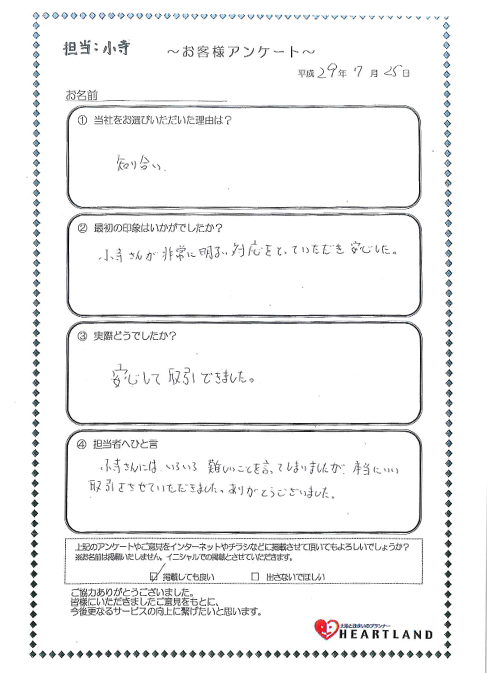 担当：小寺
～お客様アンケート～
平成29年7月25日
お名前
① 当社をお選びいただいた理由は？
知り合い
② 最初の印象はいかがでしたか？
小寺さんが非常に明るい対応をとっていただき安心した。
③ 実際どうでしたか？
安心して取引できました。
④ 担当者へひと言
小寺さんには、いろいろ難しいことを言ってしまいましたが、本当にいい
取引をさせていただきました。ありがとうございました。
上記のアンケートやご意見をインターネットやチラシなどに掲載させて頂いてもよろしいでしょうか？
※お名前は掲載いたしません。イニシャルでの掲載とさせていただきます。
☑ 掲載しても良い　□ 出さないでほしい
ご協力ありがとうございました。
皆様にいただきましたご意見をもとに、
今後更なるサービスの向上に繋げたいと思います。
土地と住まいのプランナー
HEARTLAND